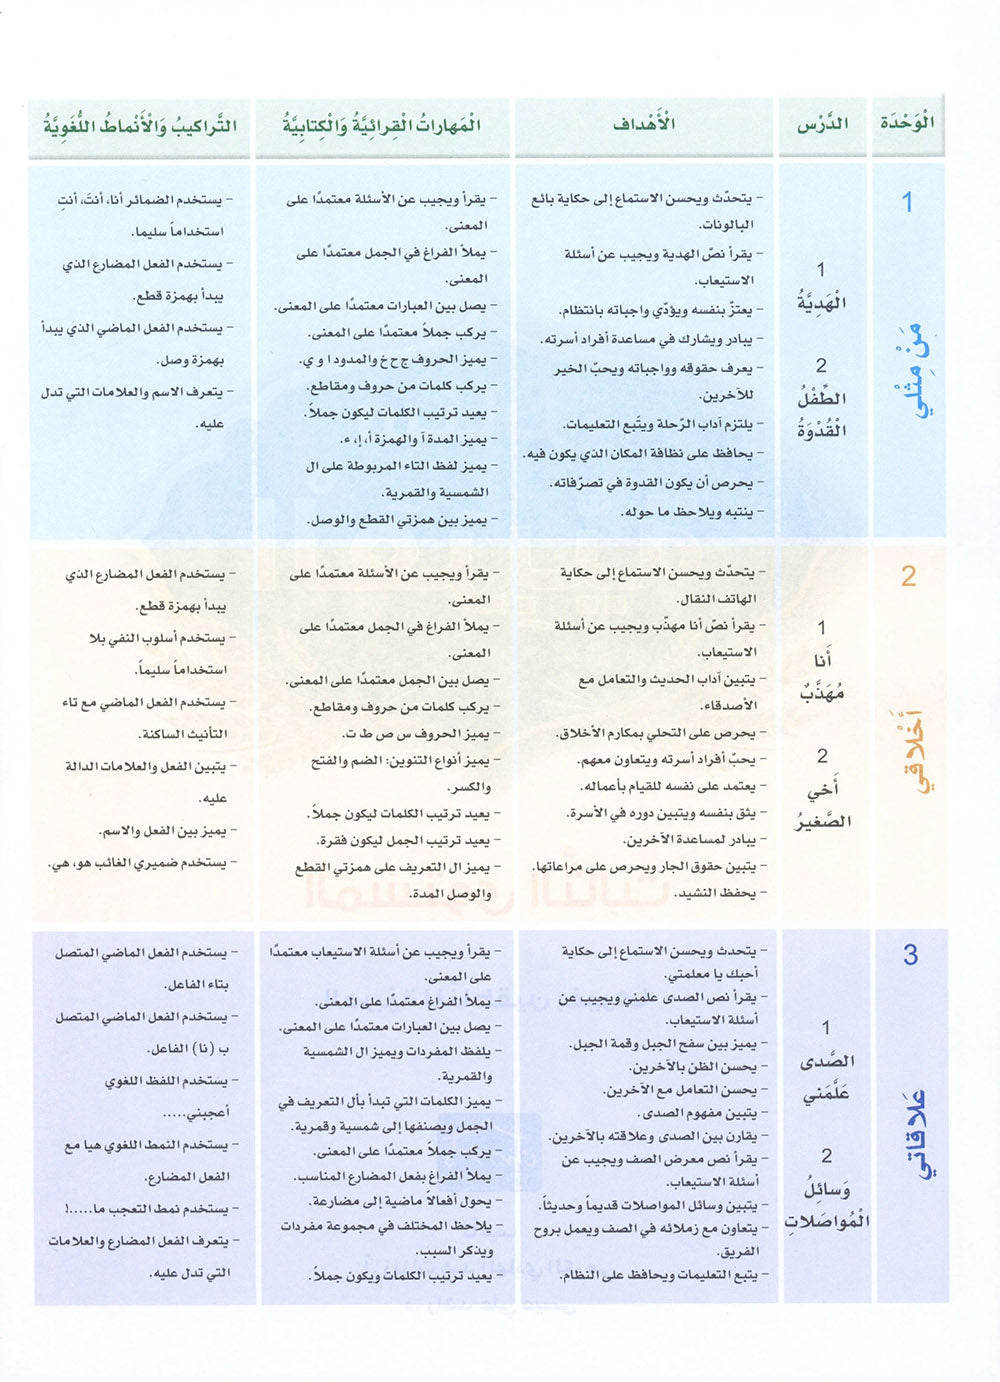 الْوَحْدَة
الدَّرْس
الْأَهْداف
الْمَهاراتُ الْقِرائِيَّةُ وَالْكِتابِيَّةُ
التَّراكيبُ وَالْأَنْماطُ اللُّغَوِيَّةُ
1
مَنْ مِثْلي
1
الْهَدِيَّةُ
2
الطِّفْلُ
الْقُدْوَةُ
– يتحدّث ويحسن الاستماع إلى حكاية بائع
البالونات.
– يقرأ نصّ الهدية ويجيب عن أسئلة
الاستيعاب.
– يعتزّ بنفسه ويؤدّي واجباته بانتظام.
– يبادر ويشارك في مساعدة أفراد أسرته.
– يعرف حقوقه وواجباته ويحبّ الخير
للآخرين.
– يلتزم آداب الرّحلة ويتّبع التعليمات.
– يحافظ على نظافة المكان الذي يكون فيه.
– يحرص أن يكون القدوة في تصرّفاته.
– ينتبه ويلاحظ ما حوله.
– يقرأ ويجيب عن الأسئلة معتمدًا على
المعنى.
– يملأ الفراغ في الجمل معتمدًا على
المعنى.
– يصل بين العبارات معتمدًا على المعنى.
– يركب جملاً معتمدًا على المعنى.
– يميز الحروف ج ح خ والمدود ا و ي.
– يركب كلمات من حروف ومقاطع.
– يعيد ترتيب الكلمات ليكون جملاً.
– يميز المدة آ والهمزة أ، إ، ء.
– يميز لفظ التاء المربوطة على ال
الشمسية والقمرية.
– يميز بين همزتي القطع والوصل.
– يستخدم الضمائر أنا، أنتَ، أنتِ
استخداماً سليما.
– يستخدم الفعل المضارع الذي
يبدأ بهمزة قطع.
– يستخدم الفعل الماضي الذي يبدأ
بهمزة وصل.
– يتعرف الاسم والعلامات التي تدل
عليه.
2
أَخْلاقي
1
أَنا
مُهَذَّبٌ
2
أَخي
الصَّغيرُ
– يتحدّث ويحسن الاستماع إلى حكاية
الهاتف النقال.
– يقرأ نصّ أنا مهذّب ويجيب عن أسئلة
الاستيعاب.
– يتبين آداب الحديث والتعامل مع
الأصدقاء.
– يحرص على التحلي بمكارم الأخلاق.
– يحبّ أفراد أسرته ويتعاون معهم.
– يعتمد على نفسه للقيام بأعماله.
– يثق بنفسه ويتبين دوره في الأسرة.
– يبادر لمساعدة الآخرين.
– يتبين حقوق الجار ويحرص على مراعاتها.
– يحفظ النشيد.
– يقرأ ويجيب عن الأسئلة معتمدًا على
المعنى.
– يملأ الفراغ في الجمل معتمدًا على
المعنى.
– يصل بين الجمل معتمدًا على المعنى.
– يركب كلمات من حروف ومقاطع.
– يميز الحروف س ص ط ت.
– يميز أنواع التنوين: الضم والفتح
والكسر.
– يعيد ترتيب الكلمات ليكون جملاً.
– يعيد ترتيب الجمل ليكون فقرة.
– يميز ال التعريف على همزتي القطع
والوصل المدة.
– يستخدم الفعل المضارع الذي
يبدأ بهمزة قطع.
– يستخدم أسلوب النفي بلا
استخداماً سليماً.
– يستخدم الفعل الماضي مع تاء
التأنيث الساكنة.
– يتبين الفعل والعلامات الدالة
عليه.
– يميز بين الفعل والاسم.
– يستخدم ضميري الغائب هو، هي.
3
عَلاقاتي
1
الصَّدى
عَلَّمَني
2
وَسائِلُ
الْمُواصَلاتِ
– يتحدث ويحسن الاستماع إلى حكاية
أحبك يا معلمتي.
– يقرأ نص الصدى علمني ويجيب عن
أسئلة الاستيعاب.
– يميز بين سفح الجبل وقمة الجبل.
– يحسن الظن بالآخرين.
– يحسن التعامل مع الآخرين.
– يتبين مفهوم الصدى.
– يقارن بين الصدى وعلاقته بالآخرين.
– يقرأ نص معرض الصف ويجيب عن
أسئلة الاستيعاب.
– يتبين وسائل المواصلات قديماً وحديثاً.
– يتعاون مع زملائه في الصف ويعمل بروح
الفريق.
– يتبع التعليمات ويحافظ على النظام.
– يقرأ ويجيب عن أسئلة الاستيعاب معتمدًا
على المعنى.
– يملأ الفراغ معتمدًا على المعنى.
– يصل بين العبارات معتمدًا على المعنى.
– يلفظ المفردات ويميز ال الشمسية
والقمرية.
– يميز الكلمات التي تبدأ بأل التعريف في
الجمل ويصنفها إلى شمسية وقمرية.
– يركب جملاً معتمدًا على المعنى.
– يملأ الفراغ بفعل المضارع المناسب.
– يحول أفعالاً ماضية إلى مضارعة.
– يلاحظ المختلف في مجموعة مفردات
ويذكر السبب.
– يعيد ترتيب الكلمات ويكون جملاً.
– يستخدم الفعل الماضي المتصل
بتاء الفاعل.
– يستخدم الفعل الماضي المتصل
ب (نا) الفاعل.
– يستخدم اللفظ اللغوي
أعجبني.....
– يستخدم النمط اللغوي هيا مع
الفعل المضارع.
– يستخدم نمط التعجب ما.....!
– يتعرف الفعل المضارع والعلامات
التي تدل عليه.